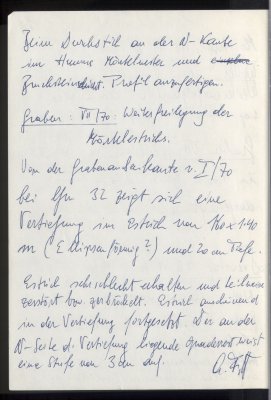 Beim Durchstich an der N-Kante
im Humus Mörtelnester und
Bruchstein Profil anzufertigen.
Graben: VII/70: Weiterfreilegung der
Mörtelestrichs.
Von der Grabenaußenkante v. I/70
bei lfm 32 zeigt sich eine
Vertiefung im Estrich von 160 x 140
m (Ellipsenförmig?) und 20 cm Tiefe.
Estrich sehr schlecht erhalten und teilweise
zerstört bzw. zerbröckelt. Estrich anscheinend
in der Vertiefung fortgesetzt. Der an der
N-Seite d. Vertiefung liegende Quaderrest weist
eine Stufe von 3 cm auf.